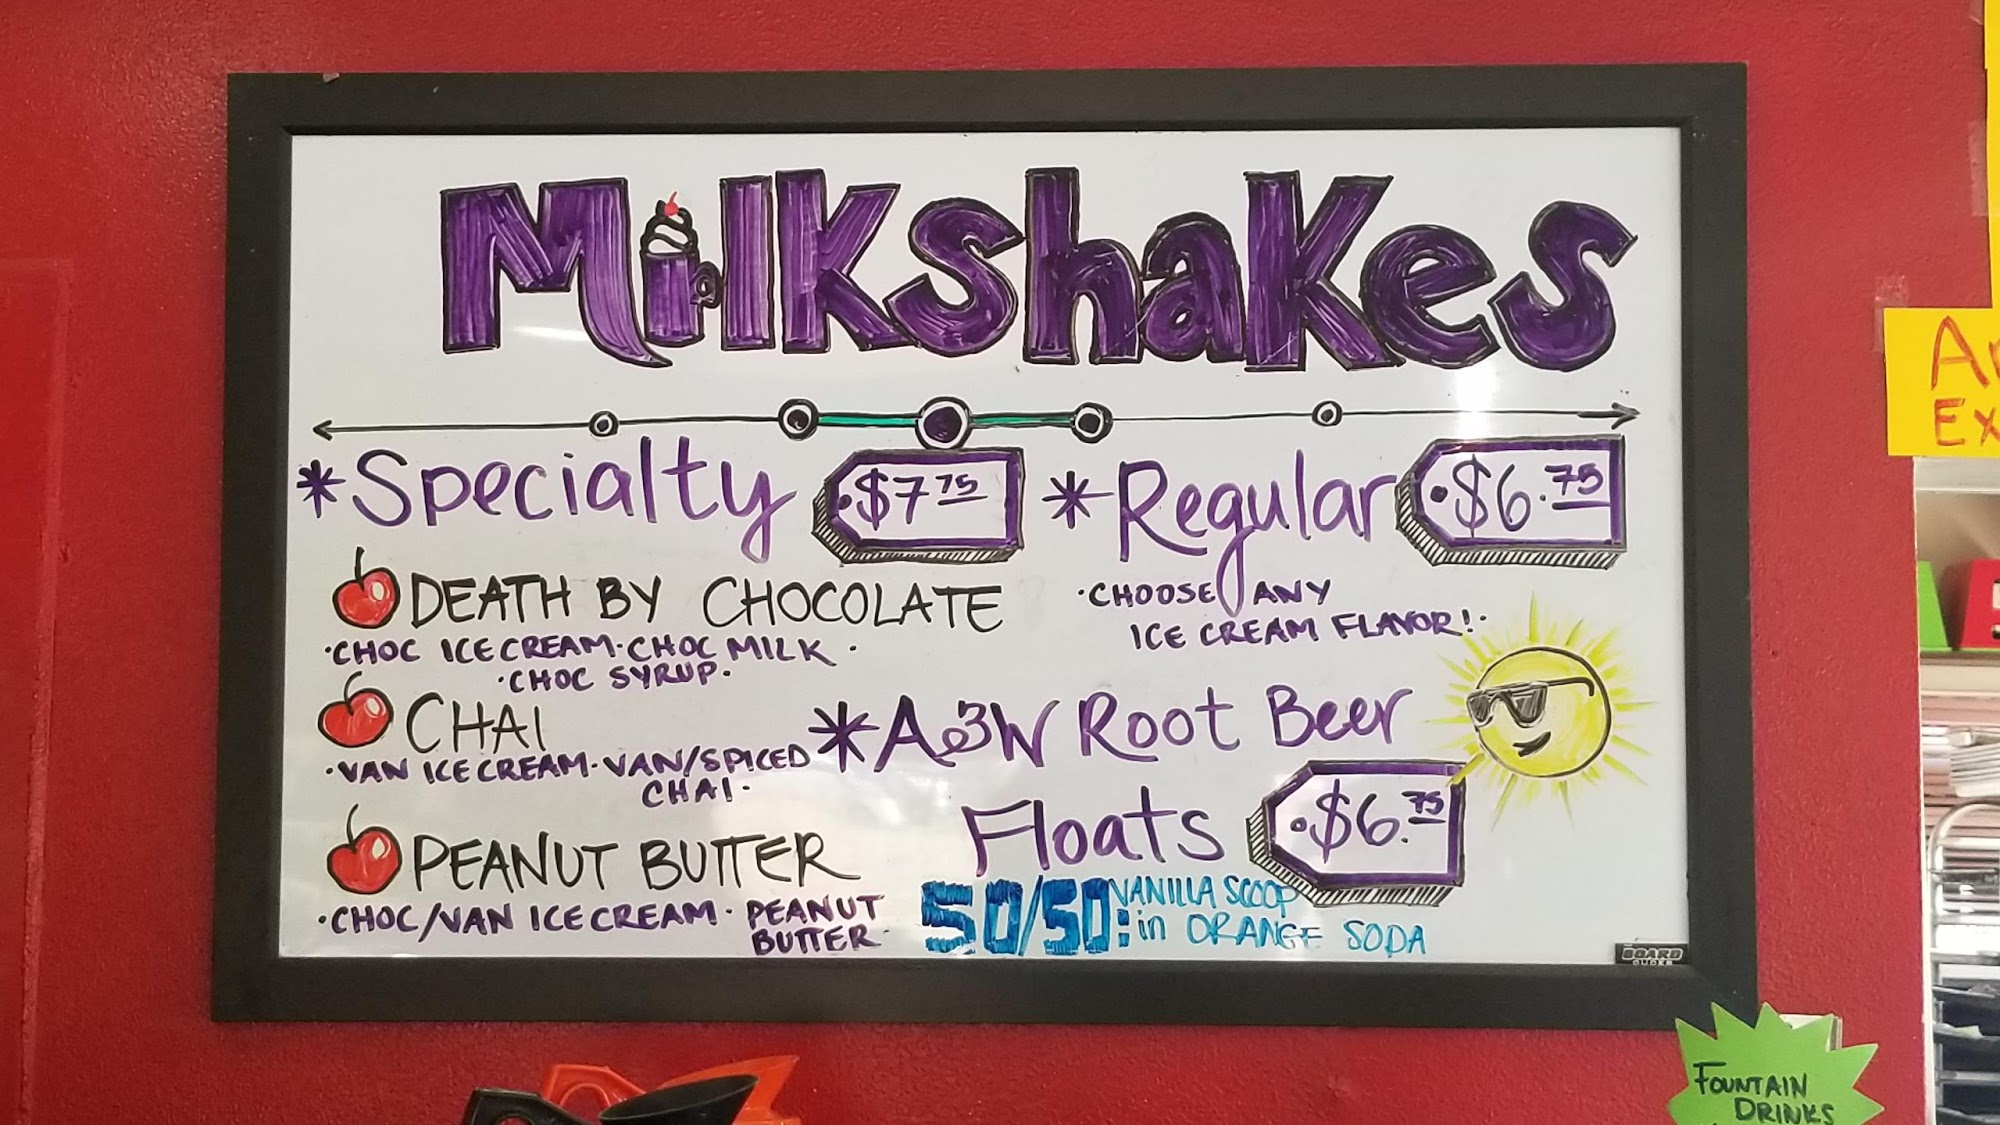 Milkshakes
*Specialty $7 75
DEATH BY CHOCOLATE
·CHOC ICE CREAM·CHOC MILK·
·CHOC SYRUP·
CHAI
·VAN ICE CREAM·VAN/SPICED
CHAI·
PEANUT BUTTER
·CHOC/VAN ICE CREAM· PEANUT
BUTTER·
*Regular $6.75
·CHOOSE ANY
ICE CREAM FLAVOR!·
*A&W Root Beer
Floats $6.75
50/50: VANILLA SCOOP
in ORANGE SODA
BOARD
DUDES
FOUNTAIN
DRINKS